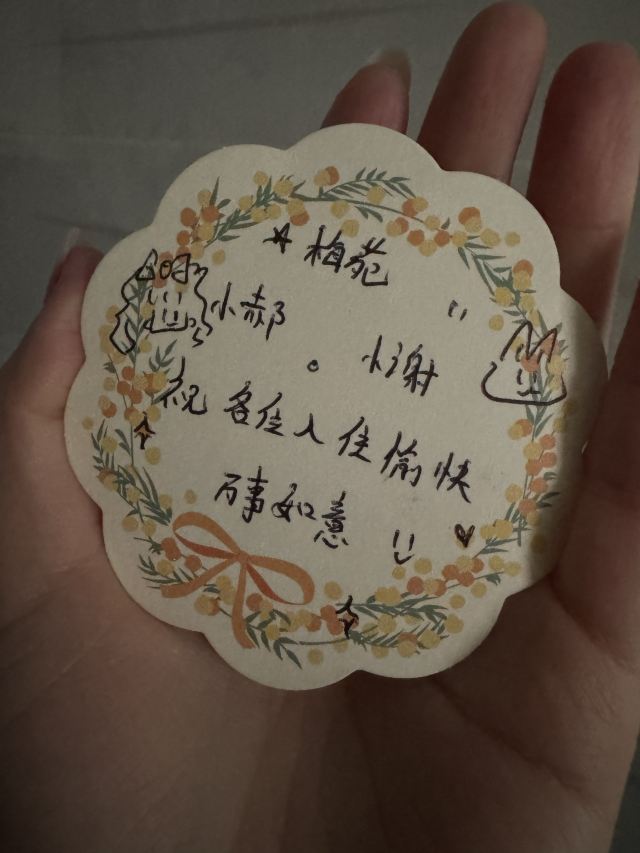 梅苑
小郝 小谢
祝各位入住愉快
万事如意